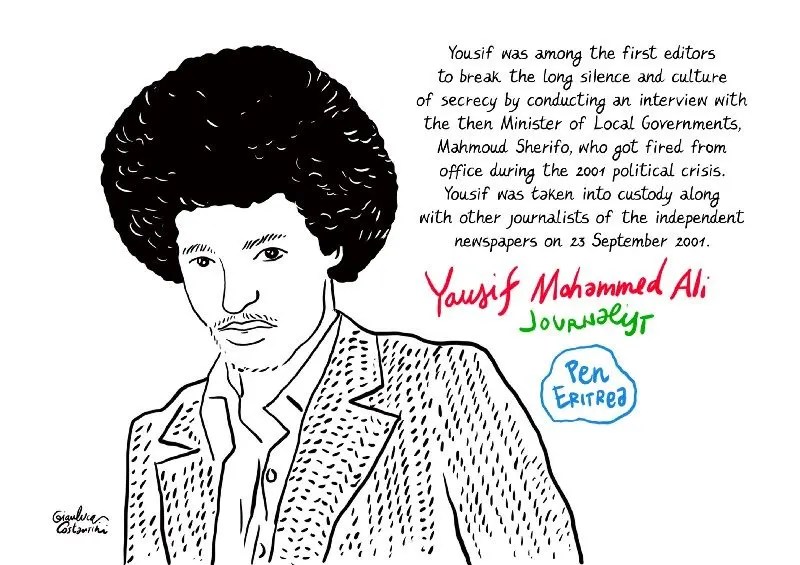 Yousif was among the first editors
to break the long silence and culture
of secrecy by conducting an interview with
the then Minister of Local Governments,
Mahmoud Sherifo, who got fired from
office during the 2001 political crisis.
Yousif was taken into custody along
with other journalists of the independent
newspapers on 23 September 2001.
Yousif Mohammed Ali
JOURNALIST
Pen
ERITREA
Gianluca
Costantini